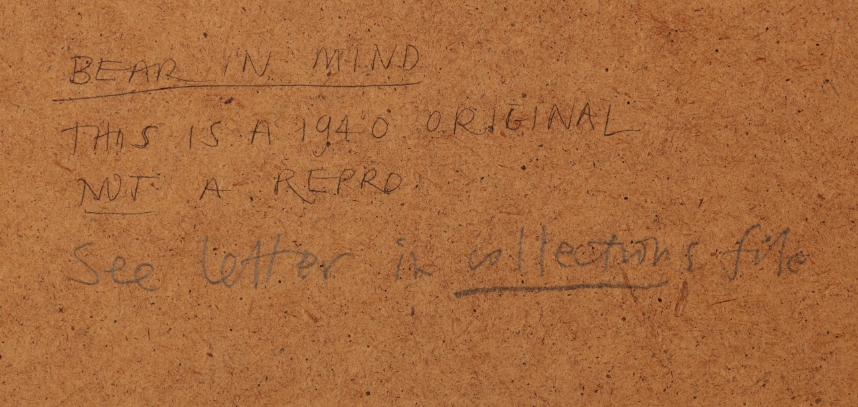 BEAR IN MIND
THIS IS A 1940 ORIGINAL
NOT A REPRO.
See letter in collections file